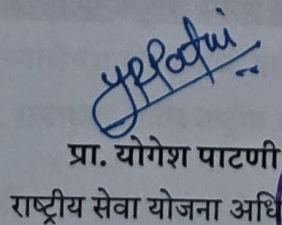 प्रा. योगेश पाटणी
राष्ट्रीय सेवा योजना अधि